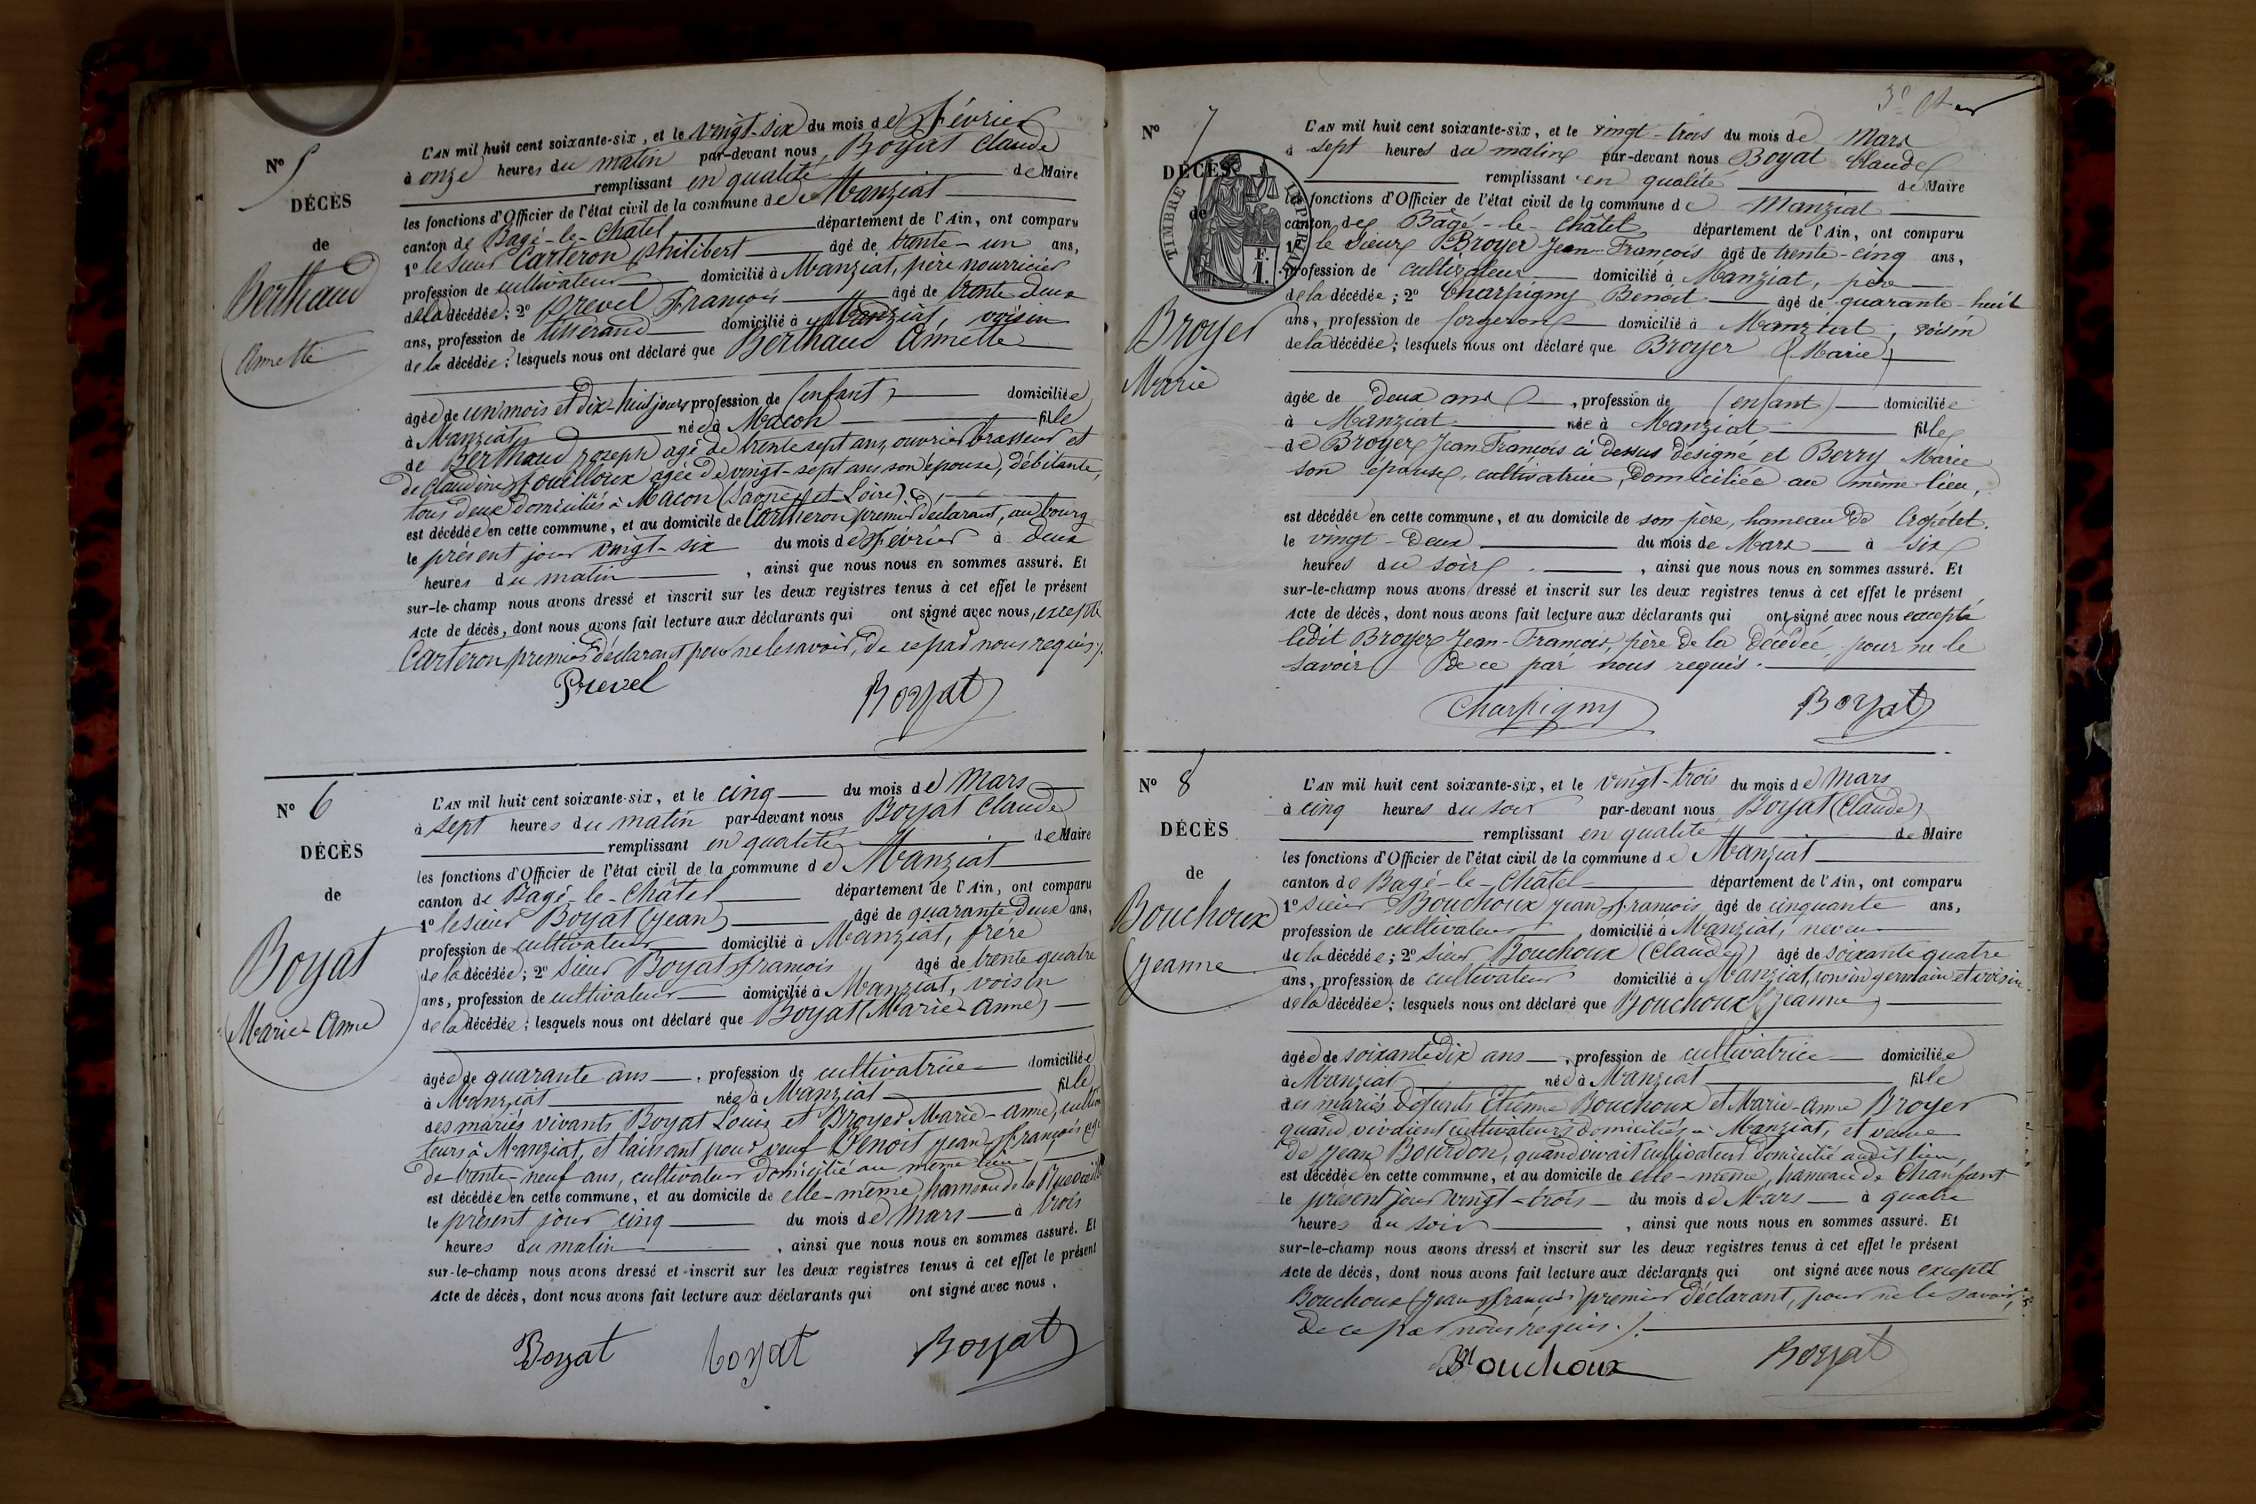 N° 5
DÉCÈS
de
Berthaud
Annette
L'AN mil huit cent soixante-six, et le vingt-six du mois de Février
à onze heures du matin par-devant nous Boyat Claude
remplissant en qualité de Maire
les fonctions d'Officier de l'état civil de la commune de Manziat
canton de Bagé-le-Châtel département de l'Ain, ont comparu
1° le sieur Carteron Philibert âgé de trente-un ans,
profession de cultivateur domicilié à Manziat, père nourricier
de la décédée; 2° Prevel François âgé de trente deux
ans, profession de tisserand domicilié à Manziat, voisin
de la décédée; lesquels nous ont déclaré que Berthaud Annette
âgée de un mois et dix-huit jours profession de (enfant) domiciliée
à Manziat née à Macon fille
de Berthaud Joseph agé de trente sept ans, ouvrier brasseur et
de Claudine agée de vingt-sept ans, son épouse, débitante,
tous deux domiciliés à Macon (Saône et Loire)
est décédée en cette commune, et au domicile de Carteron premier déclarant, au bourg
le présent jour vingt-six du mois de Février à deux
heures du matin, ainsi que nous nous en sommes assuré. Et
sur-le-champ nous avons dressé et inscrit sur les deux registres tenus à cet effet le présent
Acte de décès, dont nous avons fait lecture aux déclarants qui ont signé avec nous, excepté
Carteron premier déclarant pour ne le savoir, de ce par nous requis.
Prevel Boyat
N° 6
DÉCÈS
de
Boyat
Marie-Anne
L'AN mil huit cent soixante-six, et le cinq du mois de Mars
à sept heures du matin par-devant nous Boyat Claude
remplissant en qualité de Maire
les fonctions d'Officier de l'état civil de la commune de Manziat
canton de Bagé-le-Châtel département de l'Ain, ont comparu
1° le sieur Boyat (Jean) âgé de quarante deux ans,
profession de cultivateur domicilié à Manziat, frère
de la décédée; 2° sieur Boyat François âgé de trente quatre
ans, profession de cultivateur domicilié à Manziat, voisin
de la décédée; lesquels nous ont déclaré que Boyat (Marie-Anne)
âgée de quarante ans, profession de cultivatrice domiciliée
à Manziat née à Manziat fille
des mariés vivants Boyat Louis et Broyer Marie-Anne, cultiva
teurs à Manziat, et laissant pour veuf Benoit Jean François agé
de trente-neuf ans, cultivateur domicilié au même lieu
est décédée en cette commune, et au domicile de elle-même, hameau de la
le présent jour cinq du mois de Mars à trois
heures du matin, ainsi que nous nous en sommes assuré. Et
sur-le-champ nous avons dressé et inscrit sur les deux registres tenus à cet effet le présent
Acte de décès, dont nous avons fait lecture aux déclarants qui ont signé avec nous.
Boyat boyat Boyat
N° 7
DÉCÈS
de
TIMBRE IMPÉRIAL
1 F.
Broyer
Marie
L'AN mil huit cent soixante-six, et le vingt-trois du mois de Mars
à sept heures du matin par-devant nous Boyat Claude
remplissant en qualité de Maire
les fonctions d'Officier de l'état civil de la commune de Manziat
canton de Bâgé-le-Châtel, département de l'Ain, ont comparu
1° le Sieur Broyer Jean-François âgé de trente-cinq ans,
profession de cultivateur domicilié à Manziat, père
de la décédée; 2° Charpigny Benoit âgé de quarante-huit
ans, profession de forgeron domicilié à Manziat, voisin
de la décédée; lesquels nous ont déclaré que Broyer (Marie)
âgée de deux ans, profession de (enfant) domiciliée
à Manziat née à Manziat fille
de Broyer Jean-François ci dessus désigné et Berry Marie
son épouse, cultivatrice, domiciliée au même lieu,
est décédée en cette commune, et au domicile de son père, hameau de Cropétet.
le vingt-deux du mois de Mars à six
heures du soir, ainsi que nous nous en sommes assuré. Et
sur-le-champ nous avons dressé et inscrit sur les deux registres tenus à cet effet le présent
Acte de décès, dont nous avons fait lecture aux déclarants qui ont signé avec nous excepté
ledit Broyer Jean-François, père de la décédée, pour ne le
savoir de ce par nous requis.
Charpigny Boyat
N° 8
DÉCÈS
de
Bouchoux
Jeanne
L'AN mil huit cent soixante-six, et le vingt-trois du mois de Mars
à cinq heures du soir par-devant nous Boyat (Claude)
remplissant en qualité de Maire
les fonctions d'Officier de l'état civil de la commune de Manziat
canton de Bagé-le-Châtel département de l'Ain, ont comparu
1° sieur Bouchoux Jean François âgé de cinquante ans,
profession de cultivateur domicilié à Manziat, neveu
de la décédée; 2° sieur Bouchoux (Claude) âgé de soixante quatre
ans, profession de cultivateur domicilié à Manziat, cousin germain et voisin
de la décédée; lesquels nous ont déclaré que Bouchoux (Jeanne)
âgée de soixante dix ans, profession de cultivatrice domiciliée
à Manziat née à Manziat fille
des mariés défunts Etienne Bouchoux et Marie-Anne Broyer
quand vivaient cultivateurs domiciliés à Manziat, et veuve
de Jean Bourdon, quand vivait cultivateur domicilié audit lieu,
est décédée en cette commune, et au domicile de elle-même, hameau de Chanfant
le présent jour vingt-trois du mois de Mars à quatre
heures du soir, ainsi que nous nous en sommes assuré. Et
sur-le-champ nous avons dressé et inscrit sur les deux registres tenus à cet effet le présent
Acte de décès, dont nous avons fait lecture aux déclarants qui ont signé avec nous excepté
Bouchoux (Jean François) premier déclarant, pour ne le savoir,
de ce par nous requis.
Bouchoux Boyat